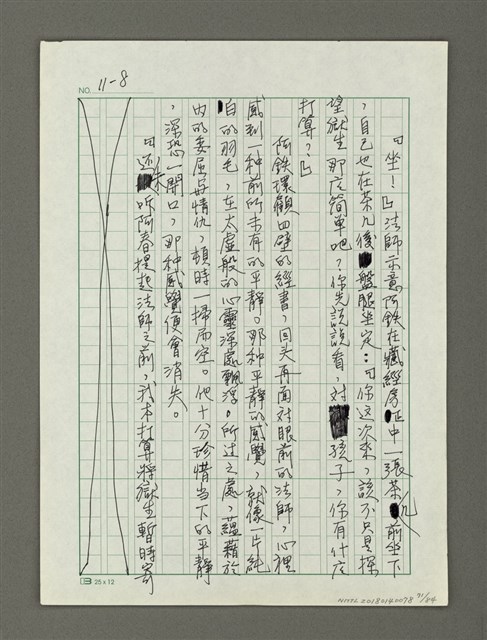 NO. 11-8
「坐!」法師示意阿鉄在藏經房正中一張茶几前坐下
,自己也在茶几後盤腿坐定:「你这次來,該不只是探
望獄生那麽简單吧?你先説説看,对孩子,你有什麽
打算?」
阿鉄環顧四壁的經書,回头再面对眼前的法師,心裡
感到一种前所未有的平靜。那种平靜的感覺,就像一片純
白的羽毛,在太虛般的心靈深處飄浮。所过之處,蘊藉於
内的委屈与情仇,頓時一掃而空。他十分珍惜当下的平靜
,深恐一開口,那种感覺便會消失。
「还未听阿春提起法師之前,我本打算將獄生暫時寄
25 x 12
NMTL20180140078 71/84